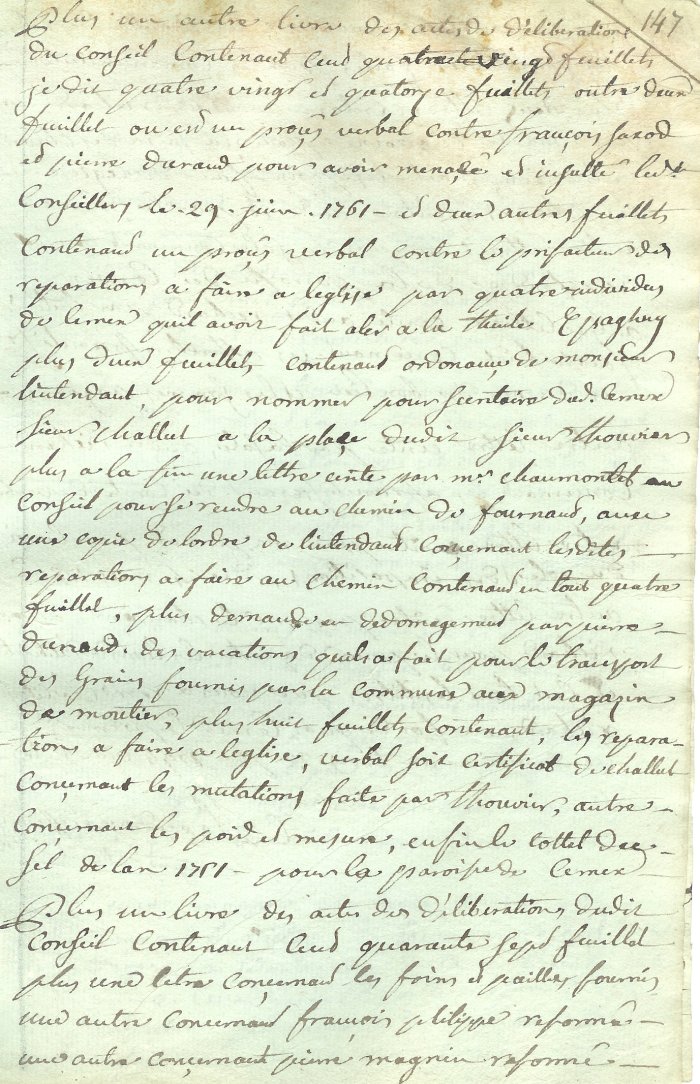 147
Plus un autre livre des actes de déliberations
du Conseil Contenant Cend quatre vingd feuillets
je dit quatre vingt et quatorze feuillets outre d'un
feuillet ou est un proçes verbal contre françois saxod
et pierre durand pour avoir menaçé et insulté led.t
Conseillers le 29 juin 1761 - et d'un autres feuillets
Contenand un proçes verbal contre le prifacteur des
reparations a faire a leglise par quatre individus
de Cernex quil avoit fait aler a la thuile Epagny
plus d'un feuillets contenand ordonançe de monsieur
lintendant, pour nommer pour secretaire dud. Cernex
sieur challut a la plaçe dudit sieur thouvier
plus a la fin une lettre ecrite par mr. chaumontet au
Conseil pour se rendre au chemin de fournand, avec
une copie de lordre de lintendand Conçernant lesdites
reparations a faire au chemin Contenand en tout quatre
feuillet, plus demande en dedomagement par pierre
durand des vacations quil a fait pour le transport
des Grains fournis par la commune aux magazin
de moutier, plus huit feuillets Contenant, les repara-
tions a faire a leglise, verbal soit certificat de challut
Conçernant les mutations faite par thouvier, autre
Conçernant les poid et mesure, enfin le cottet de
sel de lan 1761 - pour la paroisse de Cernex
Plus un livre des actes des déliberations dudit
Conseil Contenant Cend quarante sept feuillet
plus une letre conçernand les foins et pailles fournis
une autre Concernand françois philippe reformé -
une autre conçernant pierre magnin reformé -